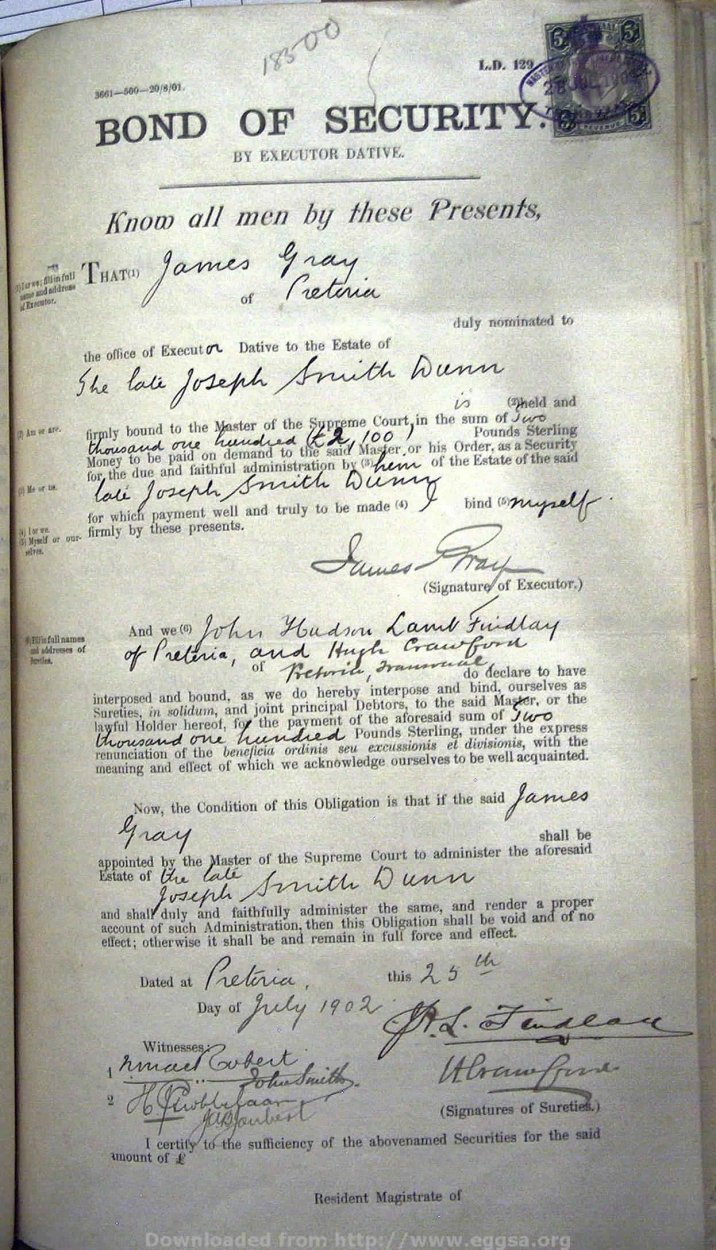 18500
L.D. 129
3661—500—20/8/01.
BOND OF SECURITY.
BY EXECUTOR DATIVE.
Know all men by these Presents,
(1) I or we; fill in full name and address of Executor.
THAT(1) James Gray
of Pretoria
duly nominated to
the office of Executor Dative to the Estate of
The late Joseph Smith Dunn
is (2)held and
(2) Am or are.
firmly bound to the Master of the Supreme Court, in the sum of Two
thousand one hundred (£2,100) Pounds Sterling
Money to be paid on demand to the said Master, or his Order, as a Security
for the due and faithful administration by (3) him of the Estate of the said
(3) Me or us.
late Joseph Smith Dunn
for which payment well and truly to be made (4) I bind (5) myself
(4) I or we.
(5) Myself or our-
selves.
firmly by these presents.
James Gray
(Signature of Executor.)
(6) Fill in full names
and addresses of
Sureties.
And we (6) John Hudson Lamb Findlay
of Pretoria, and Hugh Crawford
of Pretoria, Transvaal, do declare to have
interposed and bound, as we do hereby interpose and bind, ourselves as
Sureties, in solidum, and joint principal Debtors, to the said Master, or the
lawful Holder hereof, for the payment of the aforesaid sum of Two
thousand one hundred Pounds Sterling, under the express
renunciation of the beneficia ordinis seu excussionis et divisionis, with the
meaning and effect of which we acknowledge ourselves to be well acquainted.
Now, the Condition of this Obligation is that if the said James
Gray shall be
appointed by the Master of the Supreme Court to administer the aforesaid
Estate of the late
Joseph Smith Dunn
and shall duly and faithfully administer the same, and render a proper
account of such Administration, then this Obligation shall be void and of no
effect; otherwise it shall be and remain in full force and effect.
Dated at Pretoria, this 25th
Day of July 1902
J.H.L. Findlay
Witnesses:
1
John Smith
HCrawford
2
(Signatures of Sureties.)
Joubert
I certify to the sufficiency of the abovenamed Securities for the said
amount of £
Resident Magistrate of
Downloaded from http://www.eggsa.org